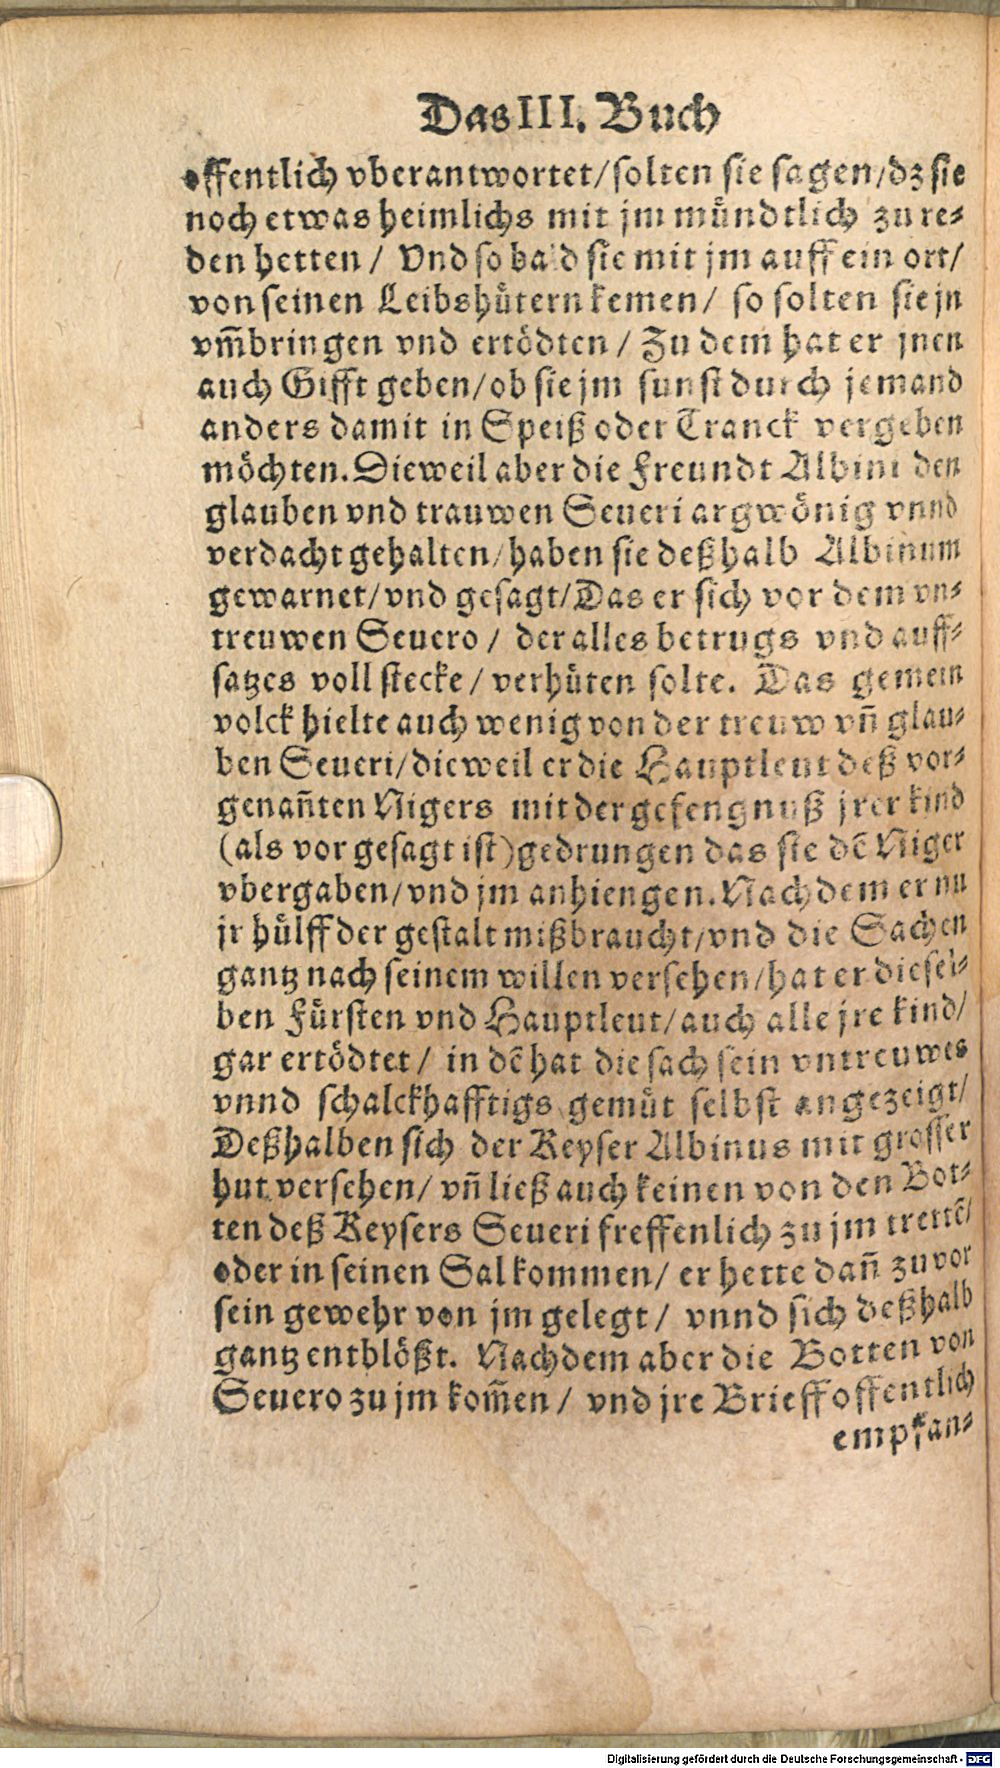 Das III. Buch
offentlich vberantwortet/solten sie sagen/dz sie
noch etwas heimlichs mit jm mündtlich zu re-
den hetten / Vnd so bald sie mit jm auff ein ort/
von seinen Leibshütern kemen / so solten sie jn
vm̃bringen vnd ertödten / Zu dem hat er jnen
auch Gifft geben/ob sie jm sunst durch jemand
anders damit in Speiß oder Tranck vergeben
möchten. Dieweil aber die Freundt Albini den
glauben vnd trauwen Seueri argwönig vnnd
verdacht gehalten/haben sie deßhalb Albinum
gewarnet/vnd gesagt/Das er sich vor dem vn-
treuwen Seuero / der alles betrugs vnd auff-
satzes voll stecke / verhüten solte. Das gemein
volck hielte auch wenig von der treuw vñ glau-
ben Seueri/dieweil er die Hauptleut deß vor-
genañten Nigers mit der gefengnuß jrer kind
(als vor gesagt ist)gedrungen das sie dẽ Niger
vbergaben/vnd jm anhiengen. Nach dem er nu
jr hülff der gestalt mißbraucht/vnd die Sachen
gantz nach seinem willen versehen/hat er diesel-
ben Fürsten vnd Hauptleut/auch alle jre kind/
gar ertödtet / in dẽ hat die sach sein vntreuwes
vnnd schalckhafftigs gemüt selbst angezeigt/
Deßhalben sich der Keyser Albinus mit grosser
hut versehen/ vñ ließ auch keinen von den Bot-
ten deß Keysers Seueri freffenlich zu jm trettẽ/
oder in seinen Sal kommen/ er hette dañ zuvor
sein gewehr von jm gelegt / vnnd sich deßhalb
gantz entblößt. Nachdem aber die Botten von
Seuero zu jm kom̃en / vnd jre Brieff offentlich
empfan-
Digitalisierung gefördert durch die Deutsche Forschungsgemeinschaft - DFG